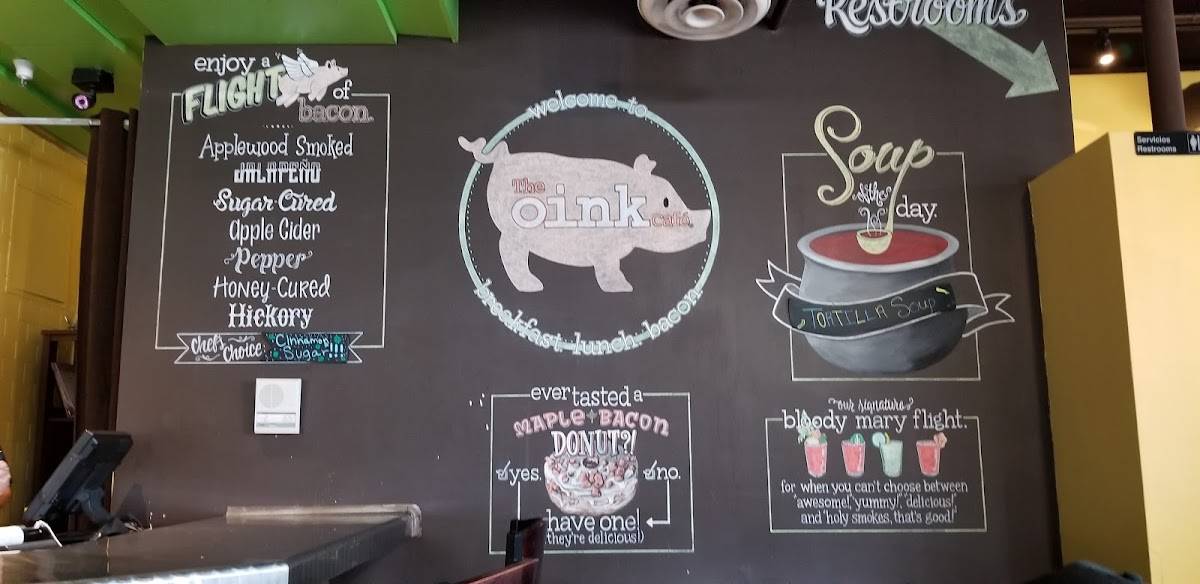 Restrooms
enjoy a
FLIGHT
of
bacon.
Applewood Smoked
JALAPEÑO
Sugar-Cured
Apple Cider
Pepper
HONEY-CURED
Hickory
Chef's Choice
Cinnamon
Sugar!!!
welcome to
The
oink
café
breakfast lunch bacon
Soup
of the
day.
TORTILLA Soup
Servicios
Restrooms
ever tasted a
MAPLE + BACON
DONUT?!
yes.
no.
have one!
(they're delicious!)
our signature
bloody mary flight.
for when you can't choose between
"awesome!," "yummy!," "delicious!"
and "holy smokes, that's good!"